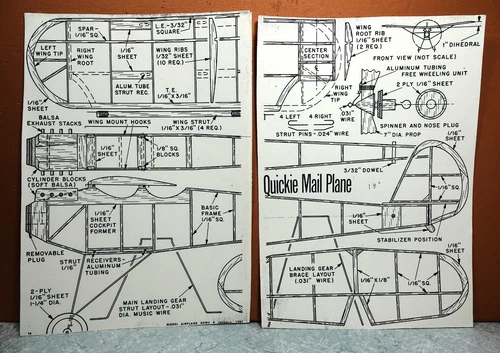 SPAR-
1/16" SQ.
L.E.-3/32"
SQUARE
LEFT
WING TIP
RIGHT
WING
ROOT
1/16"
SHEET
WING RIBS
1/32" SHEET
(10 REQ.)
ALUM. TUBE
STRUT REC.
T.E.
1/16"X3/16"
1/16"
SHEET
BALSA
EXHAUST STACKS
WING MOUNT HOOKS
WING STRUT
1/16"X3/16" (4 REQ.)
1/16"
SHEET
1/8" SQ.
BLOCKS
CYLINDER BLOCKS
(SOFT BALSA)
1/16"
SHEET
COCKPIT
FORMER
BASIC
FRAME
1/16" SQ.
REMOVABLE
PLUG
STRUT
1/16"
RECEIVERS-
ALUMINUM
TUBING
2-PLY
1/16" SHEET
1-1/4" DIA.
MAIN LANDING GEAR
STRUT LAYOUT-.031"
DIA. MUSIC WIRE
WING
ROOT RIB
1/16" SHEET
(2 REQ.)
1" DIHEDRAL
FRONT VIEW (NOT SCALE)
CENTER
SECTION
ALUMINUM TUBING
FREE WHEELING UNIT
2 PLY 1/16" SHEET
RIGHT
WING
TIP
.031"
WIRE
4 LEFT
4 RIGHT
STRUT PINS-.024" WIRE
SPINNER AND NOSE PLUG
7" DIA. PROP
1/16"
SHEET
3/32" DOWEL
Quickie Mail Plane
18"
1/16" SQ.
1/16"
SHEET
STABILIZER POSITION
1/16"
SHEET
LANDING GEAR
BRACE LAYOUT
(.031" WIRE)
1/16"X1/8"
1/16" SQ.